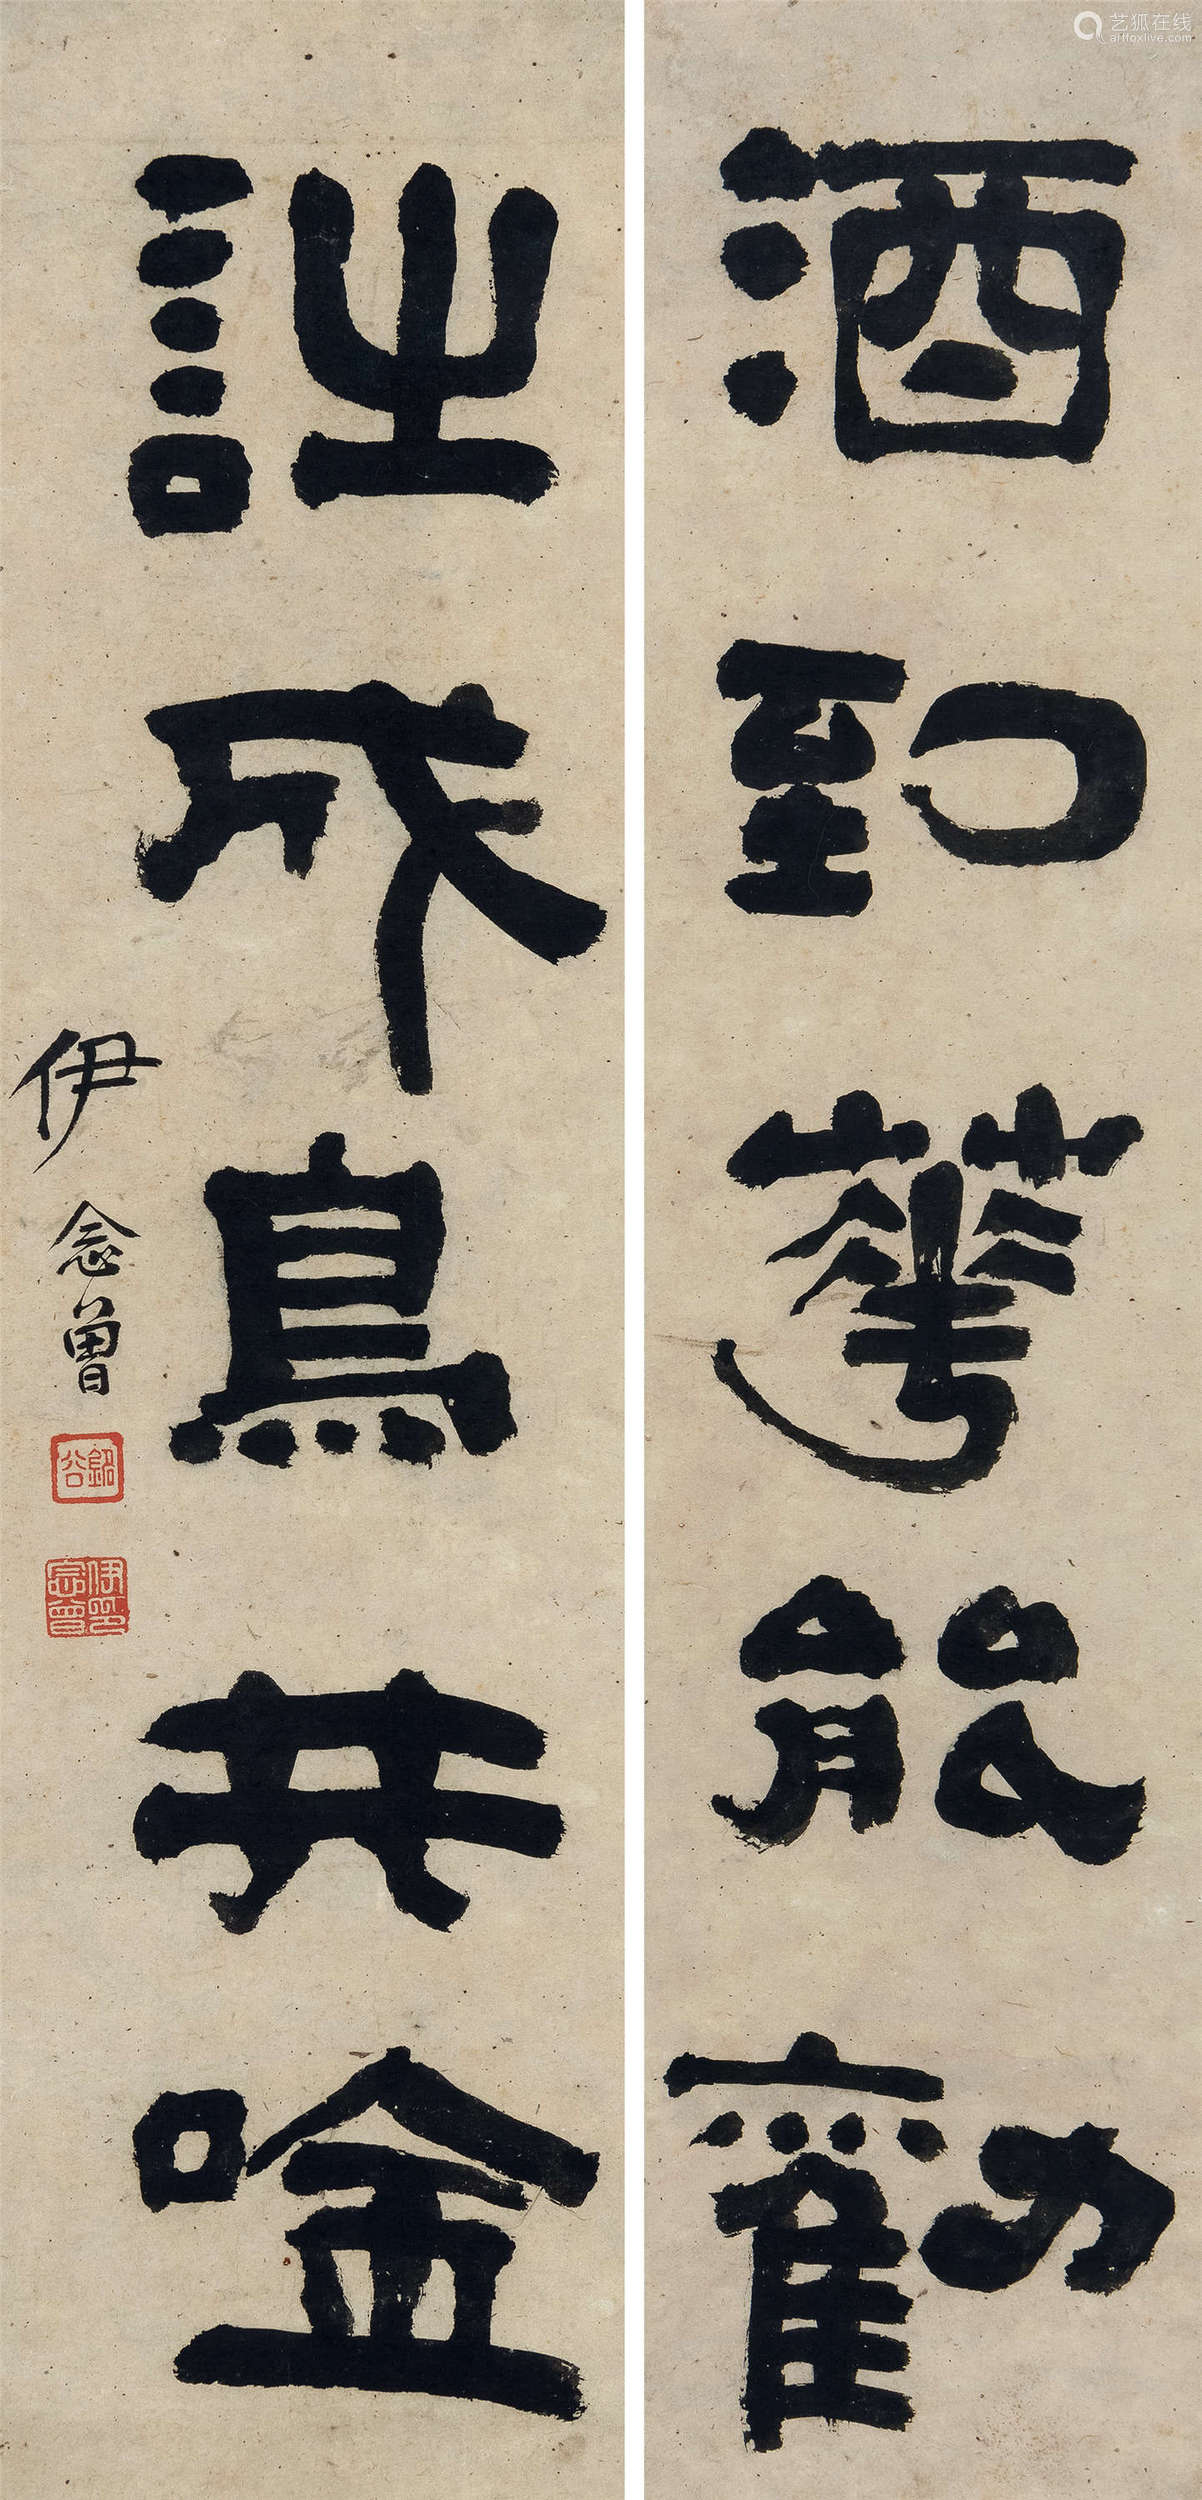 酒到華能勸
詩成鳥共唫
伊念曾
銘谷
伊念曾印
艺狐在线
artfoxlive.com